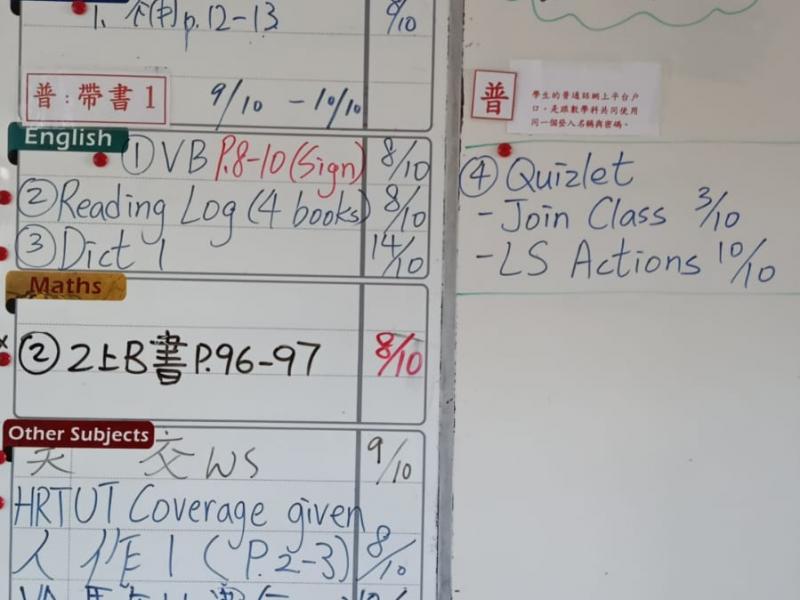 1. 个(中) p.12-13 8/10
普：帶書1 9/10 - 10/10
English
① VB P.8-10 (Sign) 8/10
② Reading Log (4 books) 8/10
③ Dict 1 14/10
Maths
② 2上B書 P.96-97 8/10
Other Subjects
交 WS 9/10
HRTUT Coverage given
人 作1 (P.2-3) 8/10
普
學生的普通話網上平台户
口，是跟數學科共同使用
同一個登入名稱與密碼。
④ Quizlet
- Join Class 3/10
- LS Actions 10/10